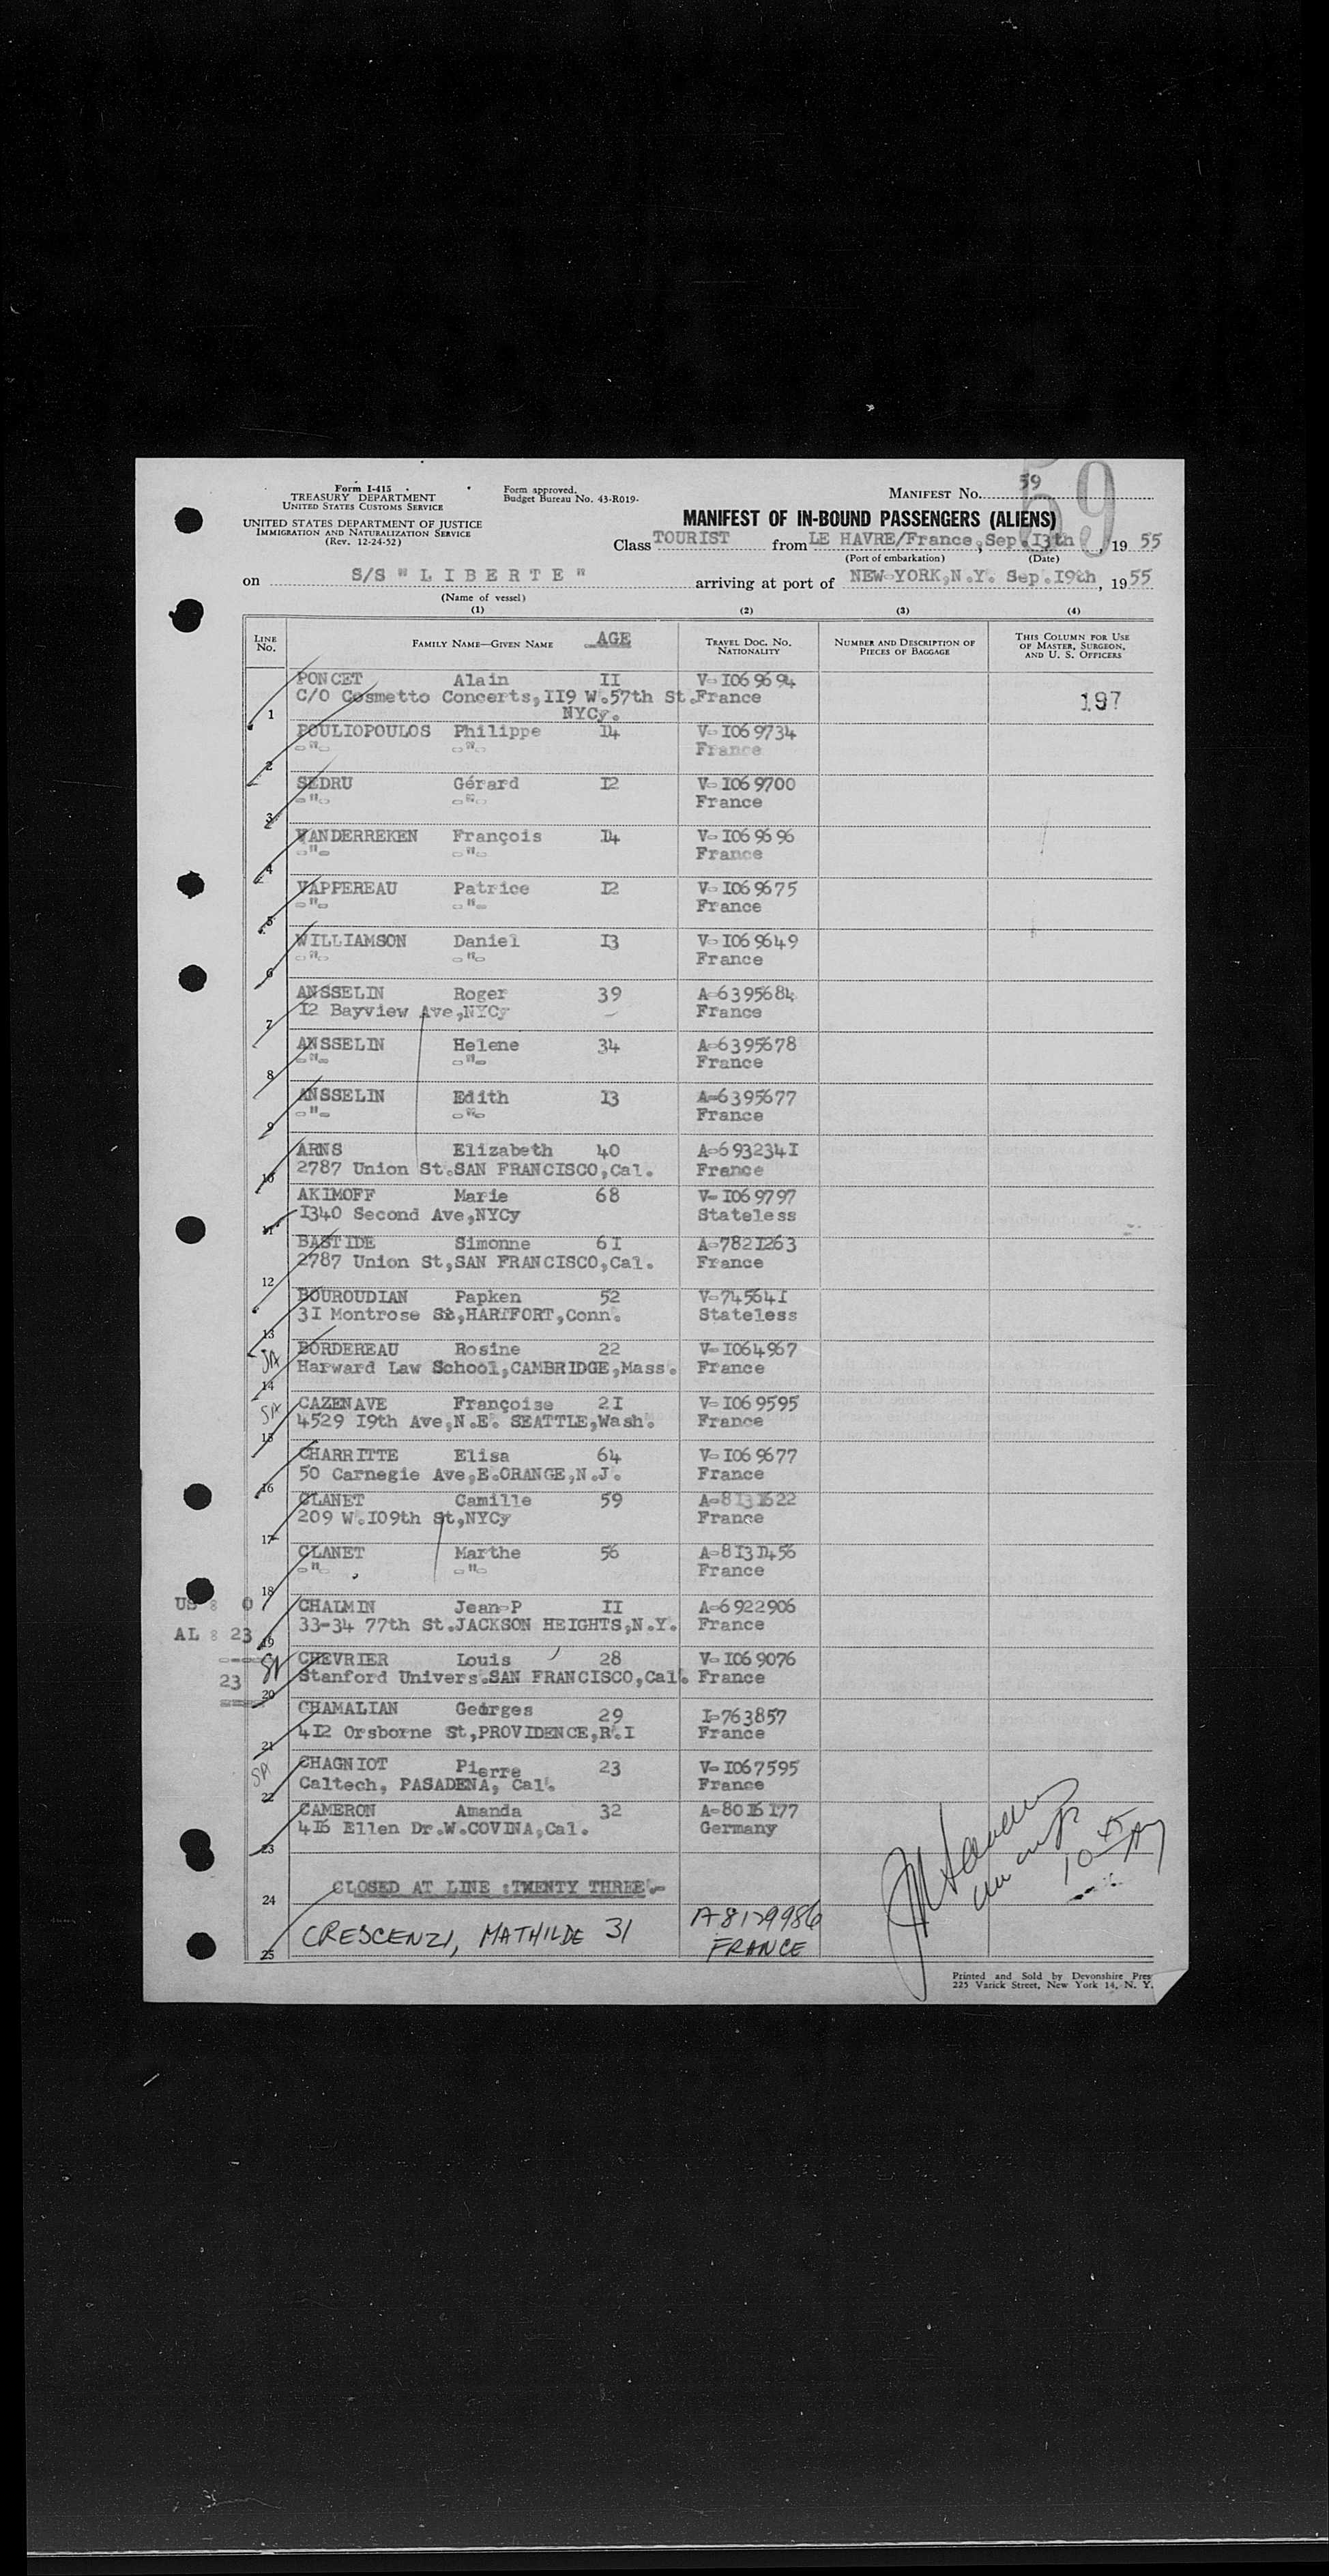 Form I-415
TREASURY DEPARTMENT
UNITED STATES CUSTOMS SERVICE
UNITED STATES DEPARTMENT OF JUSTICE
IMMIGRATION AND NATURALIZATION SERVICE
(Rev. 12-24-52)
Form approved.
Budget Bureau No. 43-R019.
MANIFEST No. 59
59
MANIFEST OF IN-BOUND PASSENGERS (ALIENS)
Class TOURIST from LE HAVRE/France, Sep.13th, 1955
(Port of embarkation) (Date)
on S/S "LIBERTE" arriving at port of NEW-YORK,N.Y. Sep.19th, 1955
(Name of vessel)
(1) (2) (3) (4)
LINE No. FAMILY NAME—GIVEN NAME AGE TRAVEL DOC. No. NATIONALITY NUMBER AND DESCRIPTION OF PIECES OF BAGGAGE THIS COLUMN FOR USE OF MASTER, SURGEON, AND U. S. OFFICERS
PONCET Alain II V-I069694
C/O Cosmetto Concerts,II9 W.57th St. France 197
1 NYCy.
POULIOPOULOS Philippe I4 V-I069734
-"- -"- France
2
SEDRU Gérard I2 V-I069700
-"- -"- France
3
VANDERREKEN François I4 V-I069696
-"- -"- France
4
VAPPEREAU Patrice I2 V-I069675
-"- -"- France
5
WILLIAMSON Daniel I3 V-I069649
-"- -"- France
6
ANSSELIN Roger 39 A-6395684
I2 Bayview Ave,NYCy France
7
ANSSELIN Helene 34 A-6395678
-"- -"- France
8
ANSSELIN Edith I3 A-6395677
-"- -"- France
9
ARNS Elizabeth 40 A-693234I
2787 Union St.SAN FRANCISCO,Cal. France
10
AKIMOFF Marie 68 V-I069797
I340 Second Ave,NYCy Stateless
11
BASTIDE Simonne 6I A-782I263
2787 Union St,SAN FRANCISCO,Cal. France
12
BOUROUDIAN Papken 52 V-74564I
3I Montrose St,HARTFORT,Conn. Stateless
13
BORDEREAU Rosine 22 V-I064967
Harward Law School,CAMBRIDGE,Mass. France
14
SA CAZENAVE Françoise 2I V-I069595
4529 I9th Ave,N.E. SEATTLE,Wash. France
15
CHARRITTE Elisa 64 V-I069677
50 Carnegie Ave,E.ORANGE,N.J. France
16
CLANET Camille 59 A-8I3I622
209 W.I09th St,NYCy France
17
CLANET Marthe 56 A-8I3I456
-"- -"- France
18
US : 0 CHALMIN Jean-P II A-6922906
33-34 77th St.JACKSON HEIGHTS,N.Y. France
AL : 23 19
CHEVRIER Louis 28 V-I069076
23 Stanford Univers.SAN FRANCISCO,Cal. France
20
CHAMALIAN Georges 29 I-763857
4I2 Orsborne St,PROVIDENCE,R.I France
21
SA CHAGNIOT Pierre 23 V-I067595
Caltech, PASADENA, Cal. France
22
CAMERON Amanda 32 A-80I6I77
4I6 Ellen Dr.W.COVINA,Cal. Germany
23
CLOSED AT LINE :TWENTY THREE.-
24
CRESCENZI, MATHILDE 31 A8129986
25 FRANCE
10 45 AM
Printed and Sold by Devonshire Pres
225 Varick Street, New York 14, N. Y.